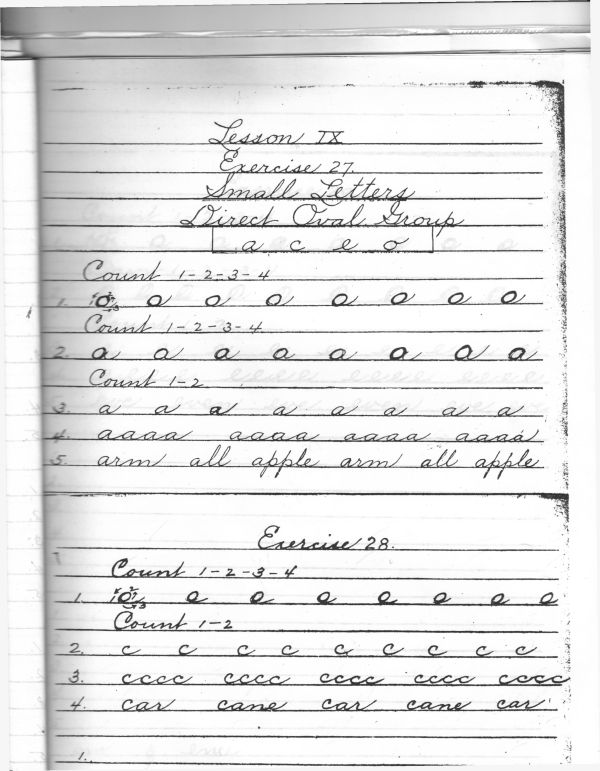 Lesson IX
Exercise 27.
Small Letters
Direct Oval Group
a c e o
Count 1-2-3-4
1. a a a a a a a a
Count 1-2-3-4
2. a a a a a a a a
Count 1-2
3. a a a a a a a a
4. aaaa aaaa aaaa aaaa
5. arm all apple arm all apple
Exercise 28.
Count 1-2-3-4
1.
Count 1-2
2. c c c c c c c c c
3. cccc cccc cccc cccc cccc
4. car cane car cane car
1.